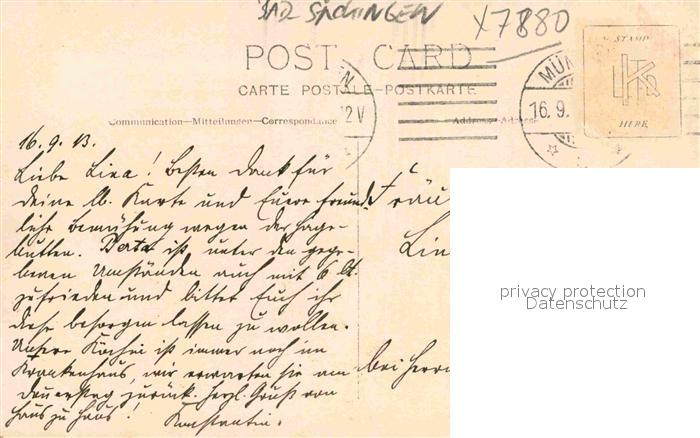 BAD SÄCKINGEN
X7880
POST CARD
CARTE POSTALE-POSTKARTE
Communication—Mitteilungen—Correspondance
Address-Adresse
STAMP
HERE
MÜN
16.9.
EN
2 V
16.9.13.
Liebe Lina! Besten Dank für
deine lb. Karte und Euere freund-
liche Bemühung wegen der Hage-
butten. Berta ist unter den gege-
benen Umständen auch mit 6 lt.
zufrieden und bittet Euch ihr
diese besorgen lassen zu wollen.
Unsere Köchin ist immer noch im
Krankenhaus, wir erwarten sie am
Donnerstag zurück. Herzl. Grüße von
Haus zu Haus!
Konstantin.
Fräu
Lin
bei Herrn
privacy protection
Datenschutz